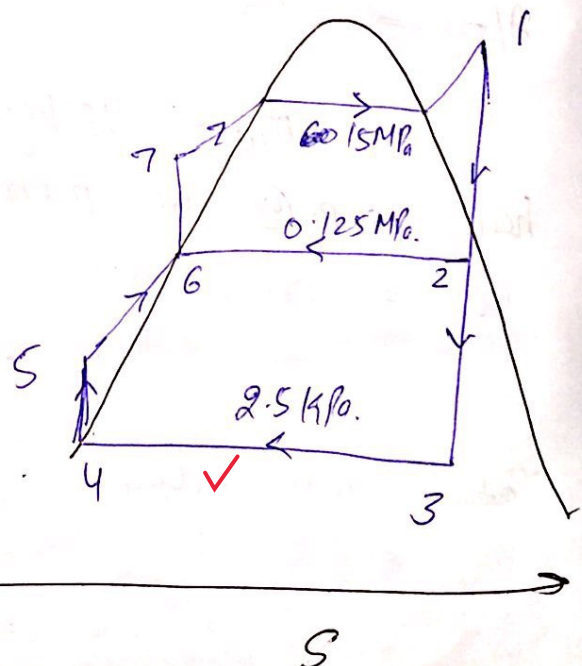 1
7
15MPa
0.125 MPa.
6
2
5
2.5 KPa.
4
3
S